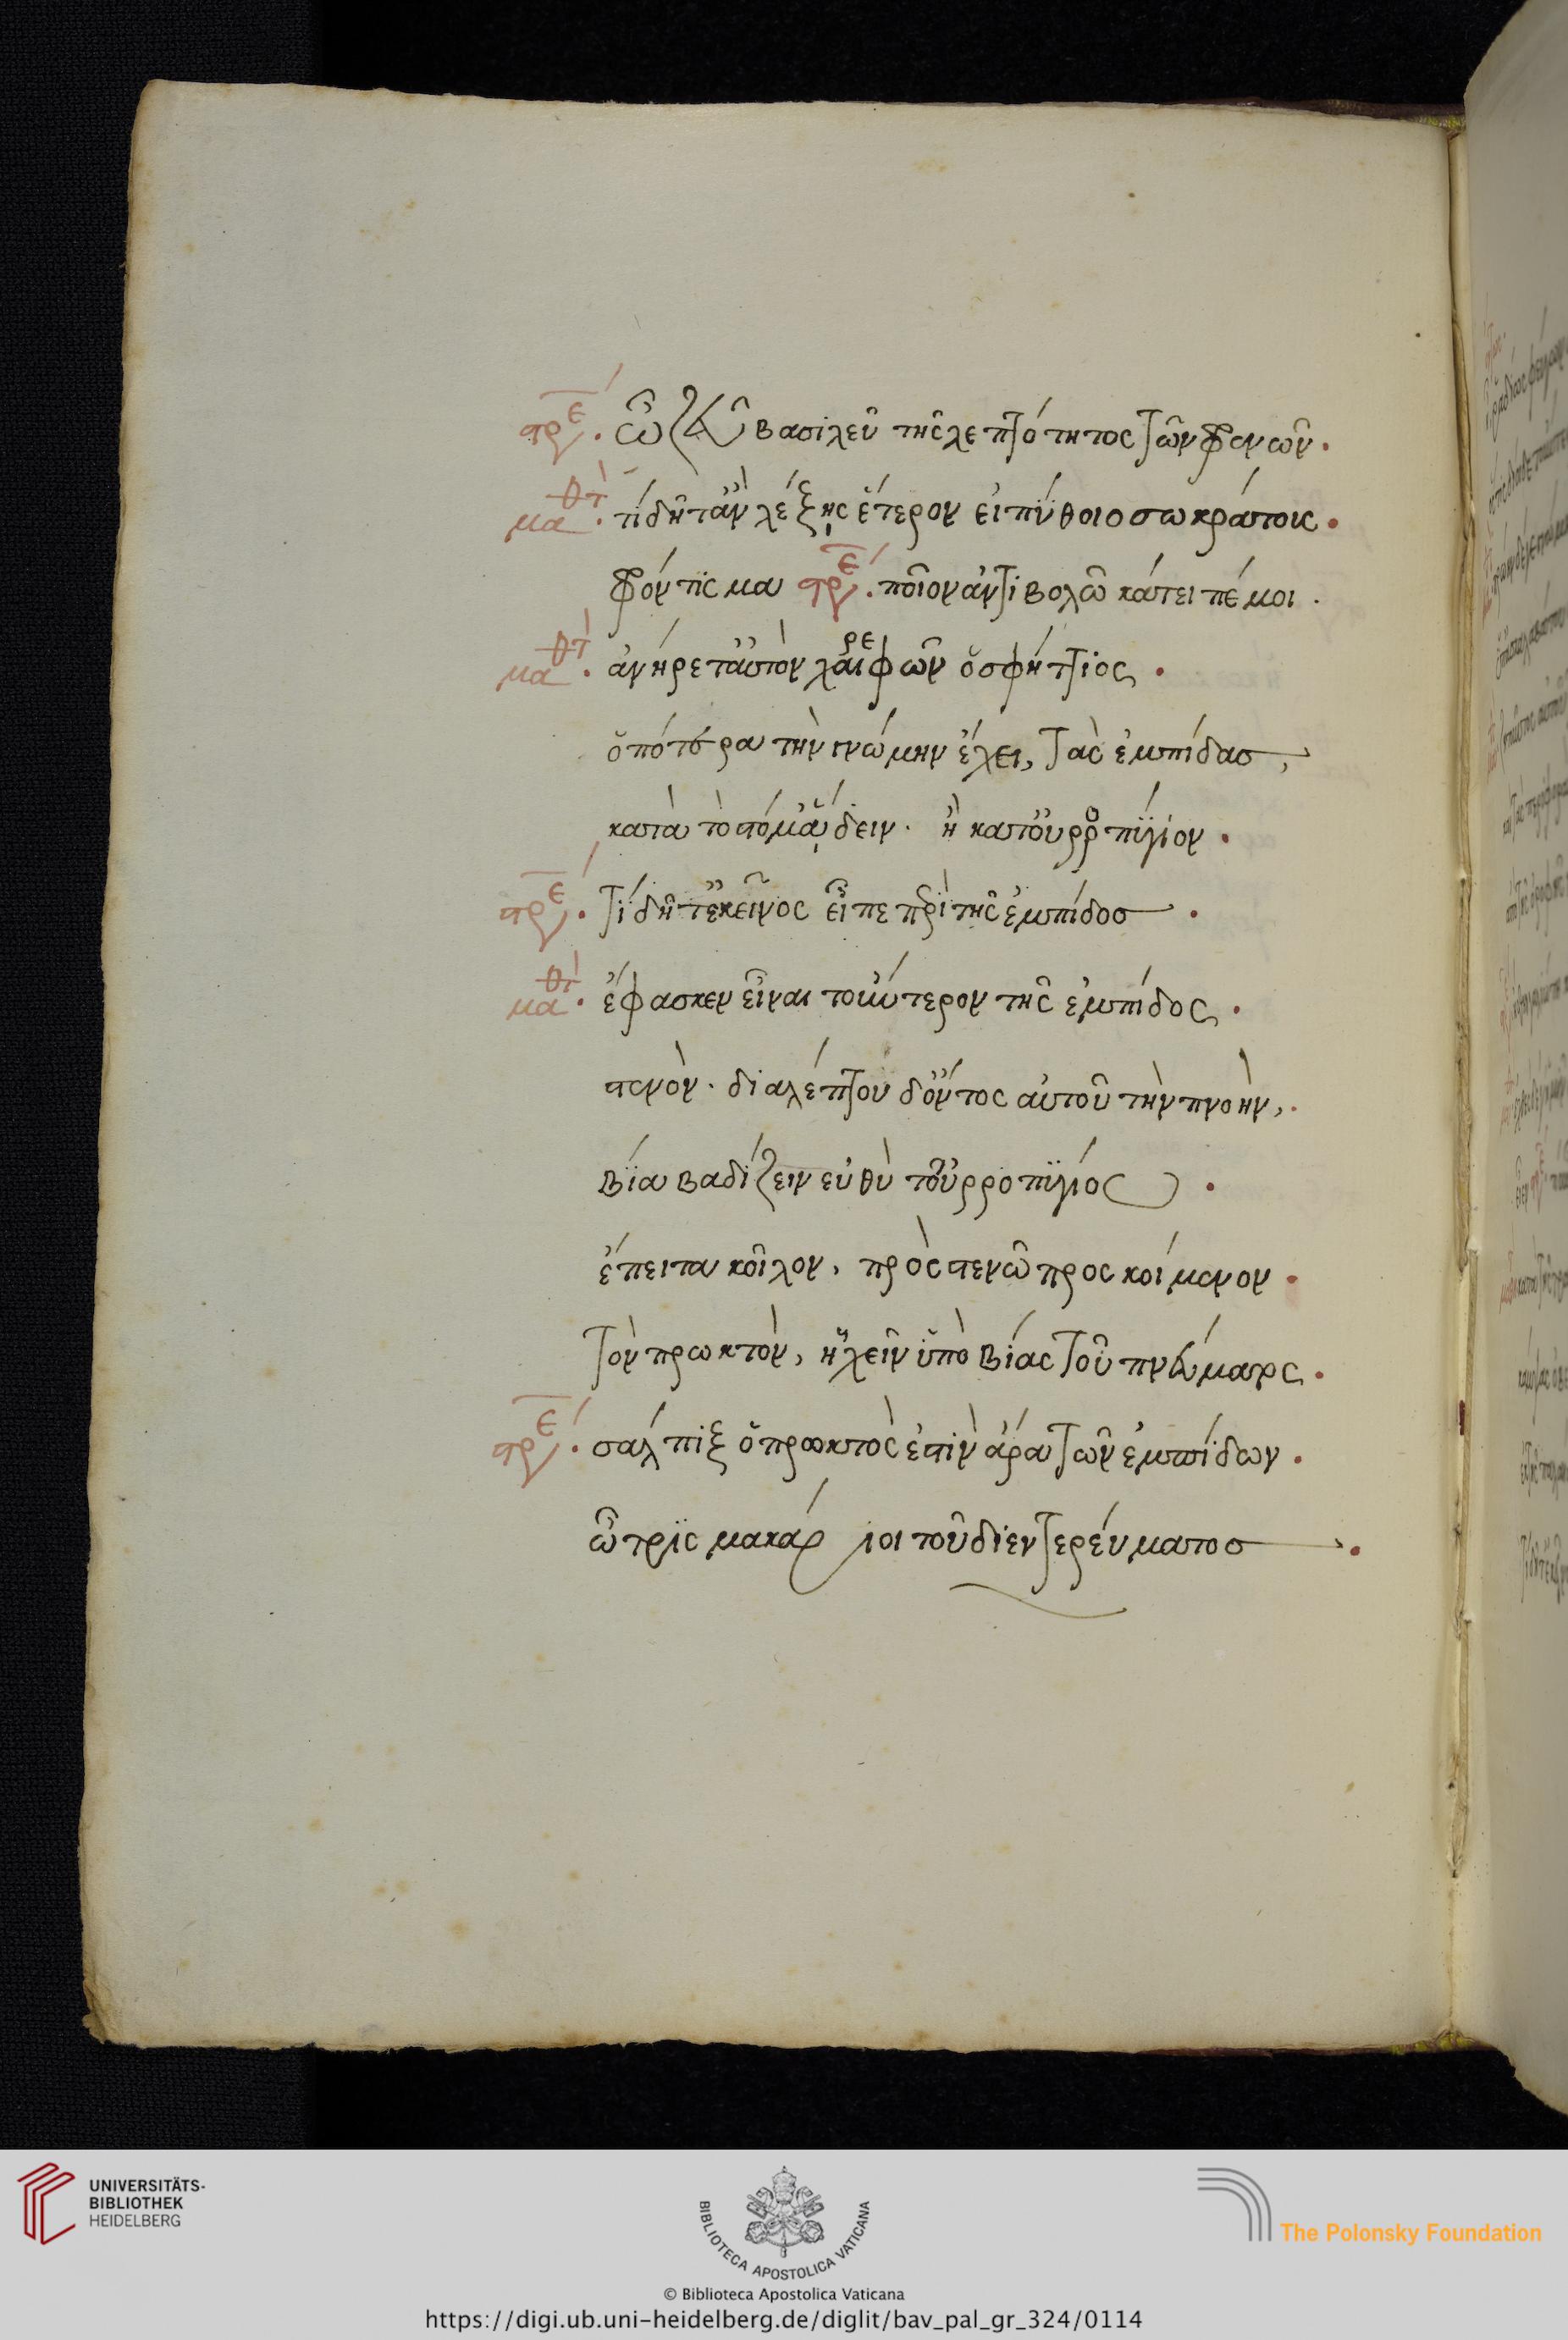 στρε. ὦ ζεῦ βασιλεῦ τῆς λεπτότητος τῶν φρενῶν.
μαθτ. τί δῆτ' ἂν λέξῃς ἕτερον εἰ πύθοιο σωκράτους.
φρόντισμα στρε. ποῖον ἀντιβολῶ κάτειπέ μοι.
μαθτ. ἀνήρετ' αὐτὸν χαιρεφῶν ὁ σφήττιος.
ὁπότερα τὴν γνώμην ἔχει, τὰς ἐμπίδας,
κατὰ τὸ στόμ' ᾄδειν. ἢ κατ' οὐρροπύγιον.
στρε. τί δῆτ' ἐκεῖνος εἶπε περὶ τῆς ἐμπίδος.
μαθτ. ἔφασκεν εἶναι τοὔντερον τῆς ἐμπίδος.
στενὸν. διὰ λεπτοῦ δ' ὄντος αὐτοῦ τὴν πνοὴν,.
βία βαδίζειν εὐθὺ τοὐρροπυγίος.
ἔπειτα κοῖλον, πρὸς στενῶ προσκοίμενον.
τὸν πρωκτὸν, ἠχεῖν ὑπὸ βίας τοῦ πνεύματος.
στρε. σάλπιξ ὁ πρωκτὸς ἐστὶν ἄρα τῶν ἐμπίδων.
ὦ τρὶς μακάριοι τοῦ διεντερεύματος.
UNIVERSITÄTS-
BIBLIOTHEK
HEIDELBERG
BIBLIOTECA APOSTOLICA VATICANA
The Polonsky Foundation
© Biblioteca Apostolica Vaticana
https://digi.ub.uni-heidelberg.de/diglit/bav_pal_gr_324/0114